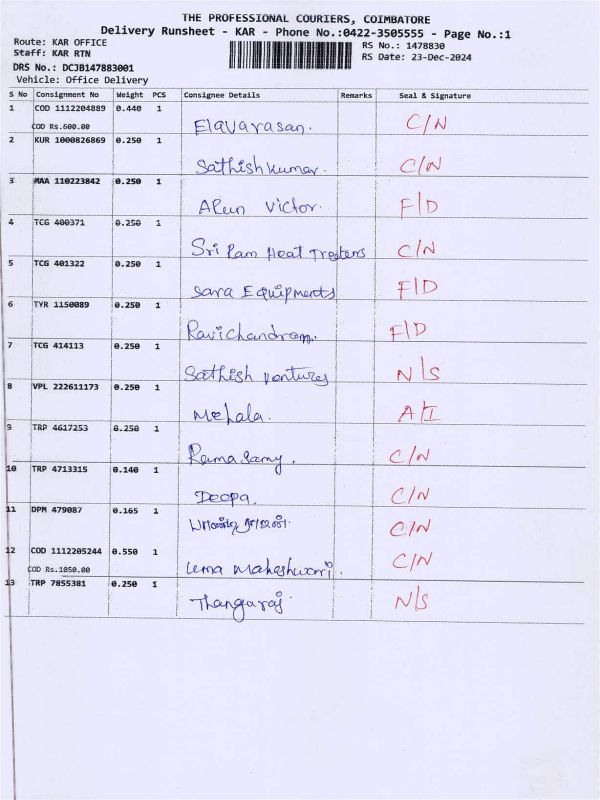 THE PROFESSIONAL COURIERS, COIMBATORE
Delivery Runsheet - KAR - Phone No.:0422-3505555 - Page No.:1
Route: KAR OFFICE
RS No.: 1478830
Staff: KAR RTN
RS Date: 23-Dec-2024
DRS No.: DCJB147883001
Vehicle: Office Delivery
S No Consignment No Weight PCS Consignee Details Remarks Seal & Signature
1 COD 1112204889 0.440 1 Elavarasan. C/N
COD Rs.600.00
2 KUR 1000826869 0.250 1 Sathishkumar. C/N
3 MAA 110223842 0.250 1 Arun Victor. F/D
4 TCG 400371 0.250 1 Sri Ram Heat Treaters C/N
5 TCG 401322 0.250 1 Sara Equipments F/D
6 TYR 1150089 0.250 1 Ravichandran. F/D
7 TCG 414113 0.250 1 Sathish Ventures N/S
8 VPL 222611173 0.250 1 Mehala. A/I
9 TRP 4617253 0.250 1 Ramasamy. C/N
10 TRP 4713315 0.140 1 Deepa. C/N
11 DPM 479087 0.165 1 C/N
12 COD 1112205244 0.550 1 Uma Maheshwari. C/N
COD Rs.1050.00
13 TRP 7855381 0.250 1 Thangaraj N/S